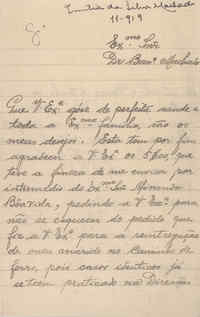 Emilia da Silva Machado
11-9-9
Ex.mo Snr
Dr Bern.º Machado
Que V Ex.ª góse de perfeita saude e
toda a Ex.ma familia, são os
meus desejos. Esta tem por fim
agradecer a V Ex.ª os 5$000, que
teve a finesa de me enviar por
intermedio do Ex.mo Snr Miranda
pedindo a V Ex.ª para
não se esquecer do pedido que
fiz a V Ex.ª para a reintegração
de meu marido no Caminho de
ferro, pois casos identicos já
se teem praticado na Direcção